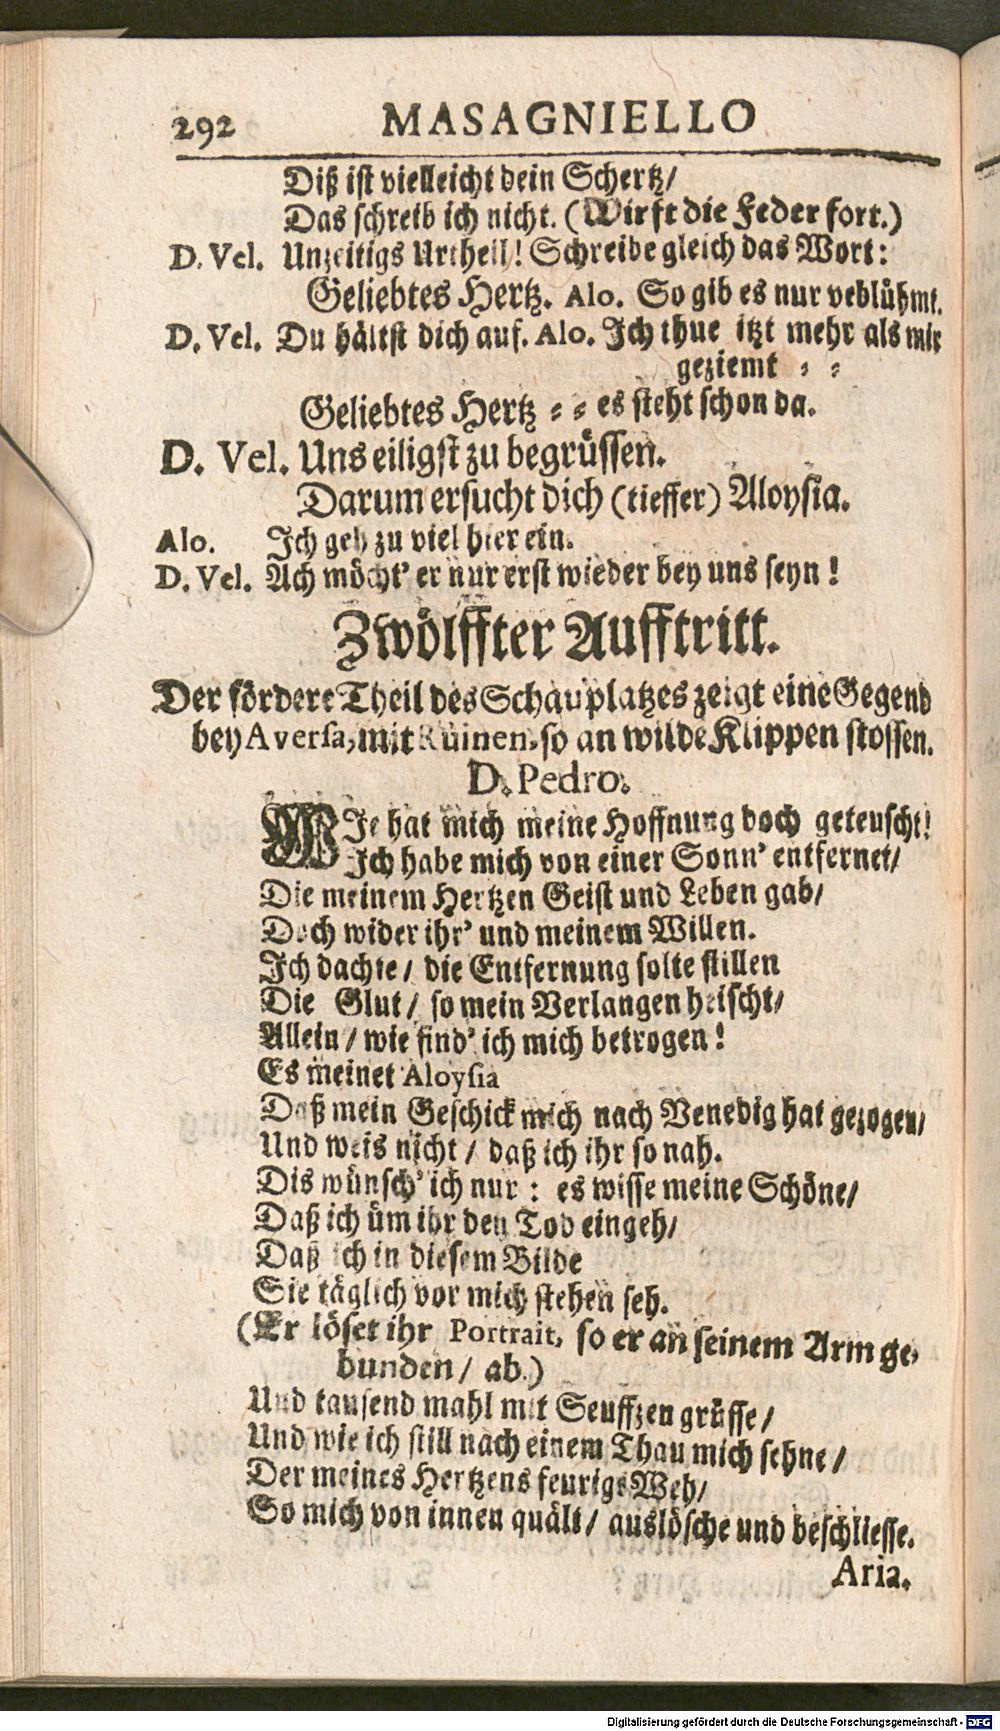 292 MASAGNIELLO
Diß ist vielleicht dein Schertz/
Das schreib ich nicht. (Wirft die Feder fort.)
D. Vel. Unzeitigs Urtheil! Schreibe gleich das Wort:
Geliebtes Hertz. Alo. So gib es nur veblühmt.
D. Vel. Du hältst dich auf. Alo. Ich thue itzt mehr als mir
geziemt ⸗ ⸗
Geliebtes Hertz ⸗ ⸗ es steht schon da.
D. Vel. Uns eiligst zu begrüssen.
Darum ersucht dich (tieffer) Aloysia.
Alo. Ich geh zu viel hier ein.
D. Vel. Ach möcht' er nur erst wieder bey uns seyn!
Zwölffter Aufftritt.
Der fördere Theil des Schauplatzes zeigt eine Gegend
bey Aversa, mit Ruinen, so an wilde Klippen stossen.
D. Pedro.
WIe hat mich meine Hoffnung doch geteuscht!
Ich habe mich von einer Sonn' entfernet/
Die meinem Hertzen Geist und Leben gab/
Doch wider ihr' und meinem Willen.
Ich dachte/ die Entfernung solte stillen
Die Glut/ so mein Verlangen heischt/
Allein/ wie find' ich mich betrogen!
Es meinet Aloysia
Daß mein Geschick mich nach Venedig hat gezogen/
Und weis nicht/ daß ich ihr so nah.
Dis wünsch' ich nur: es wisse meine Schöne/
Daß ich üm ihr den Tod eingeh/
Daß ich in diesem Bilde
Sie täglich vor mich stehen seh.
(Er löset ihr Portrait, so er an seinem Arm ge⸗
bunden/ ab.)
Und tausend mahl mit Seuffzen grüsse/
Und wie ich still nach einem Thau mich sehne/
Der meines Hertzens feurigs Weh/
So mich von innen quält/ auslösche und beschliesse.
Aria.
Digitalisierung gefördert durch die Deutsche Forschungsgemeinschaft - DFG